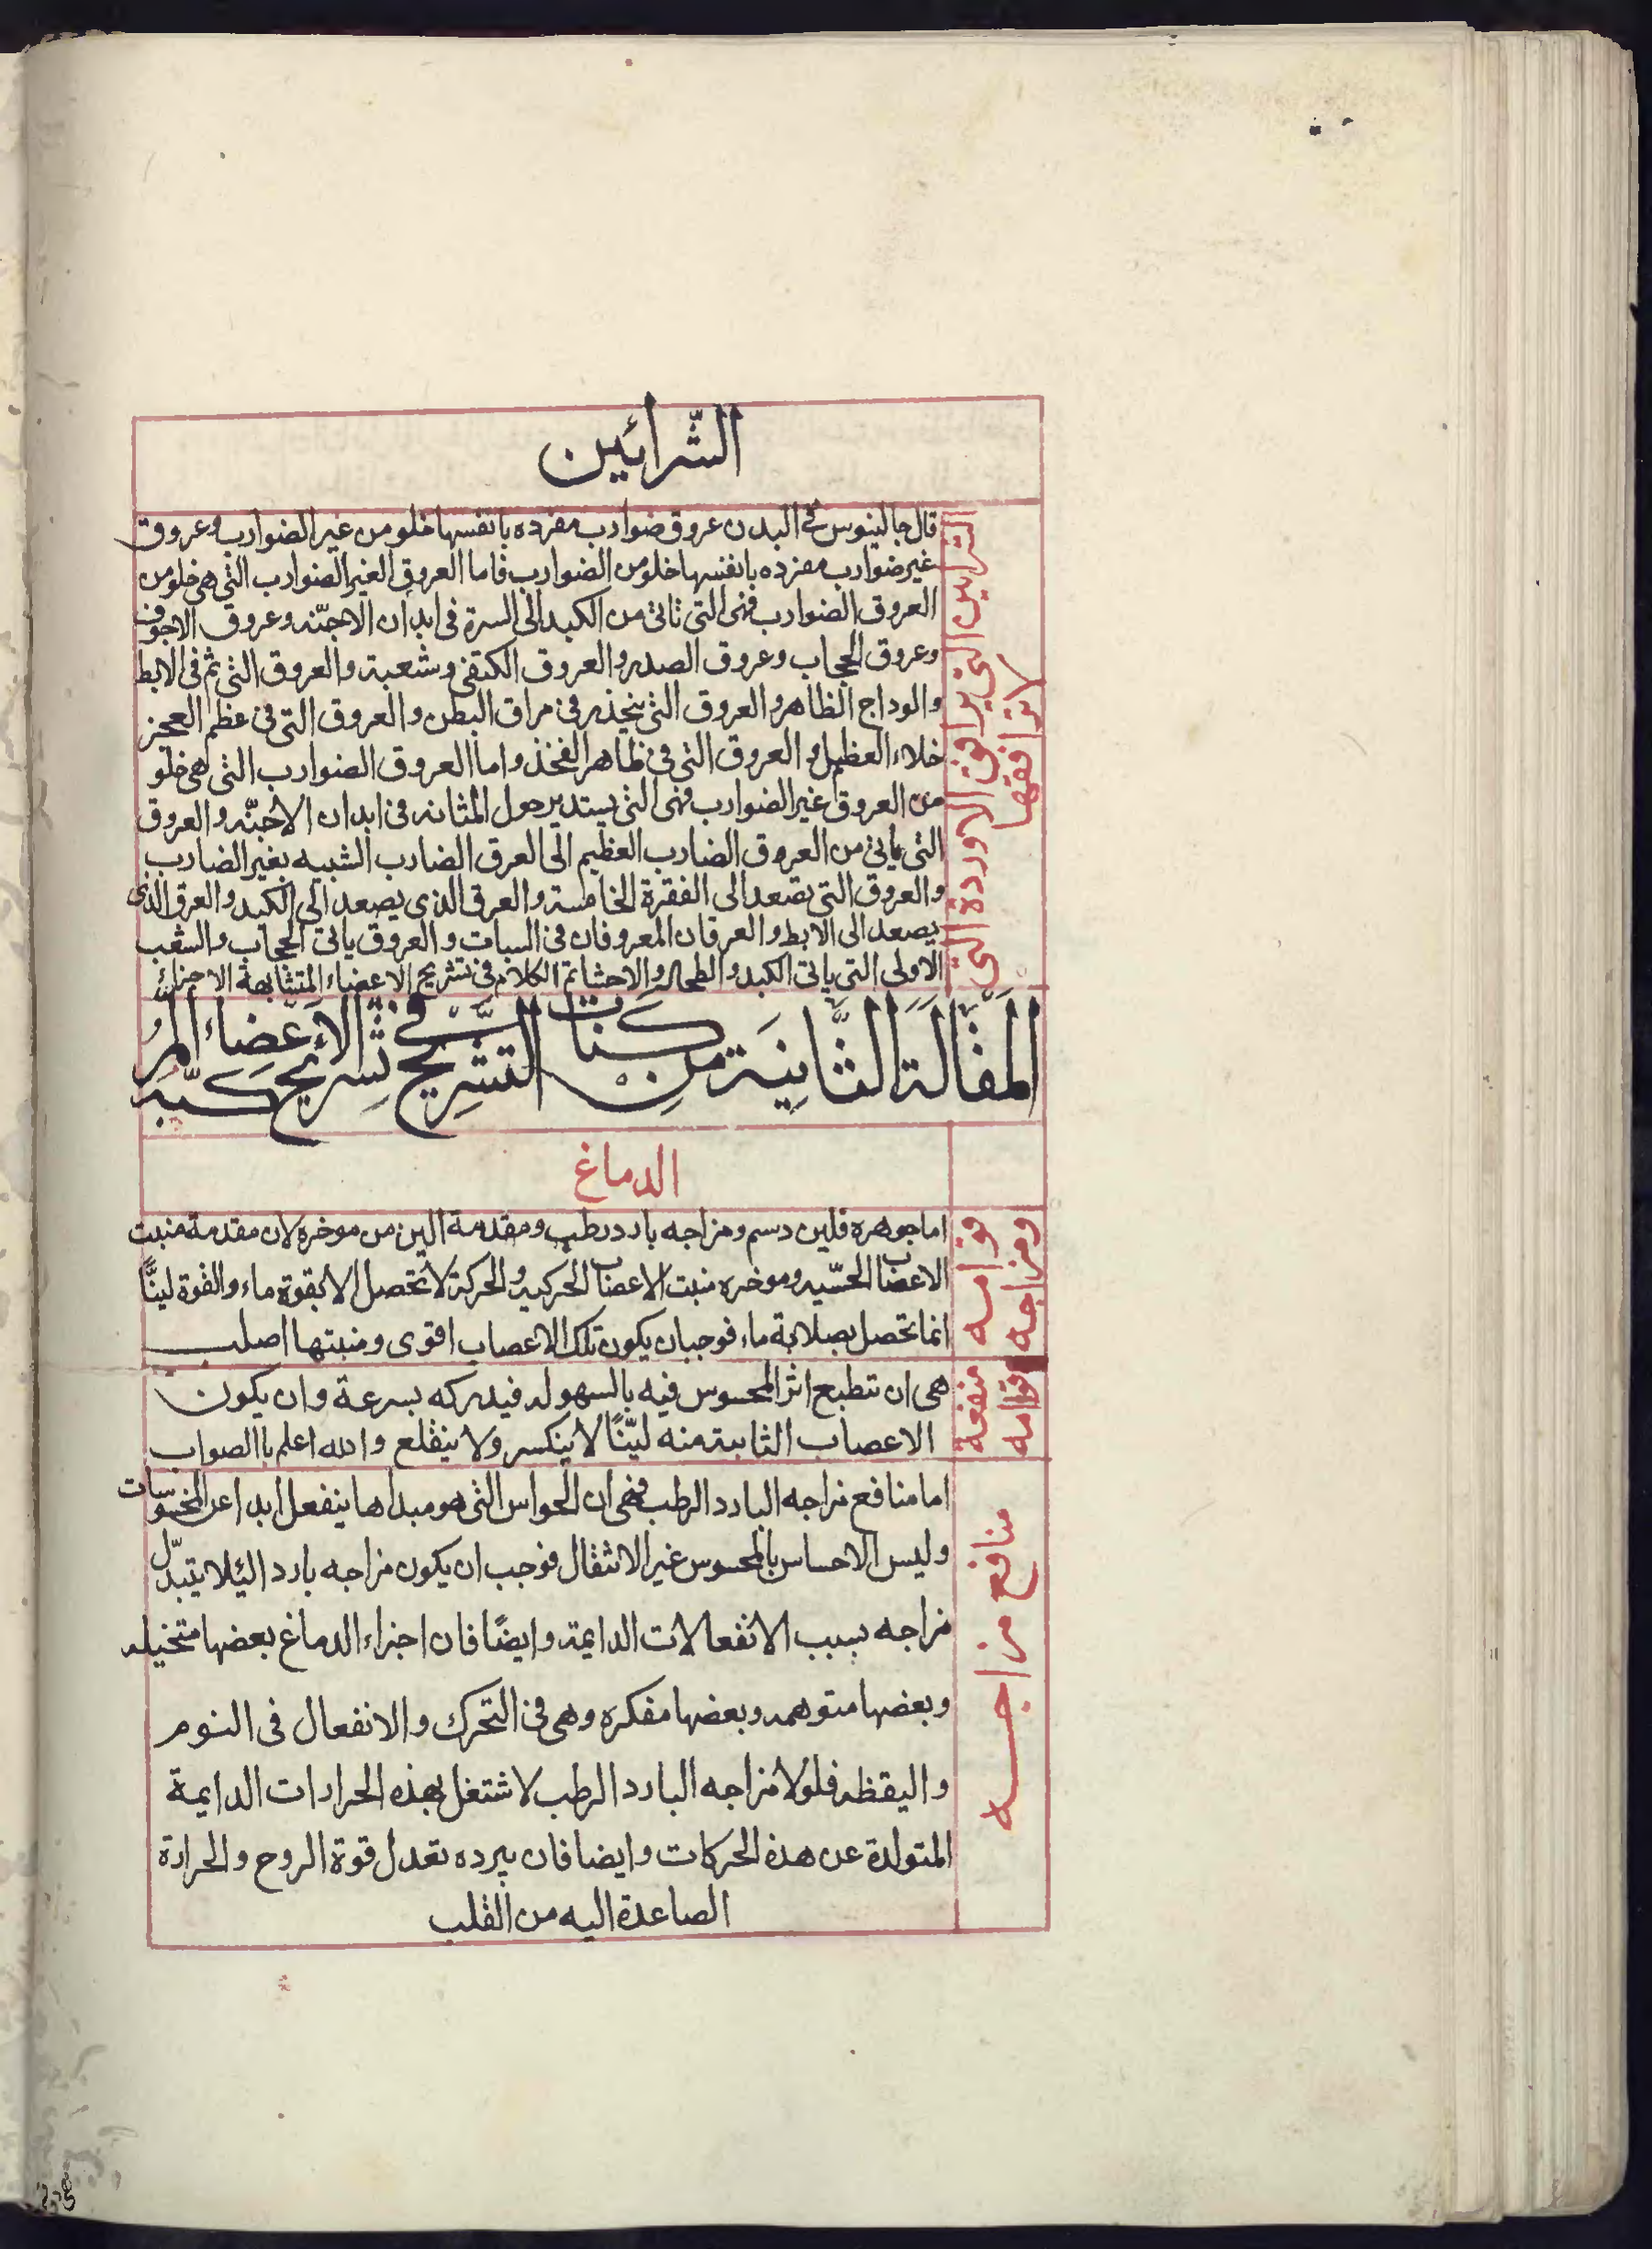 الشّرائين
الشرايين التي يرافق الاوردة التي
لا يرافقها
قال جالينوس في البدن عروق ضوارب مفرده بانفسها خلو من غير الضوارب وعروق
غير ضوارب مفرده بانفسها خلو من الضوارب فاما العروق الغير الضوارب التي هي خلو من
العروق الضوارب فهي التي تاتي من الكبد الى السرة في ابدان الاجنّه وعروق الاجوف
وعروق الحجاب وعروق الصدر والعروق الكتفي وشعبة والعروق التي ثم في الابط
والوداج الظاهر والعروق التي ينحذر في مراق البطن والعروق التي في عظم العجز
خلاء العظيم والعروق التي في ظاهر الفخذ واما العروق الضوارب التي هي خلو
من العروق غير الضوارب فهي التي يستدير حول المثانه في ابدان الاجنّه والعروق
التي ياتي من العروق الضارب العظيم الى العرق الضارب الشبيه بغير الضارب
والعروق التي تصعد الى الفقرة الخامسة والعرق الذي يصعد الى الكبد والعرق الذي
يصعد الى الابط والعرقان المعروفان في السبات والعروق ياتي الحجاب والشعب
الاولى التي ياتي الكبد والطحال والاحشا تم الكلام في تشريح الاعضاء المتشابهة الاجزاء
المقالة الثّانية من كتاب التشريح في تشريح الاعضاء المركبة
الدماغ
قوامه
ومزاجه
اما جوهره فلين دسم ومزاجه بارد رطب ومقدمة الين من موخره لان مقدمة منبت
الاعضاب الحسّيه وموخره منبت الاعضاب الحركيه والحركة لا تحصل الا بقوة ماء والقوة لينًّا
انما تحصل بصلابة ماء فوجبان يكون تلك الاعصاب اقوى ومنبتها اصلب
منفعة
قوامه
هي ان تنطبع اثر المحسوس فيه بالسهوله فيدركه بسرعة وان يكون
الاعصاب الثابتة منه ليّنًا لا ينكسر ولا ينقلع والله اعلم باالصواب
منافع مزاجه
اما منافع مزاجه البارد الرطب فهي ان الحواس التي هو مبداها ينفعل ابدا عن المحسوسات
وليس الاحساس بالمحسوس غير الانتقال فوجب ان يكون مزاجه بارد اليئلا يتبدّل
مزاجه بسبب الانفعالات الدايمة وايضًا فان اجزاء الدماغ بعضها متخيله
وبعضها متوهمه وبعضها مفكره وهي في التحرك والانفعال في النوم
واليقظه فلولا مزاجه البارد الرطب لاشتغل بهذه الحرارات الدايمة
المتولدة عن هذه الحركات وايضا فان ببرده تعدل قوة الروح والحرارة
الصاعدة اليه من القلب